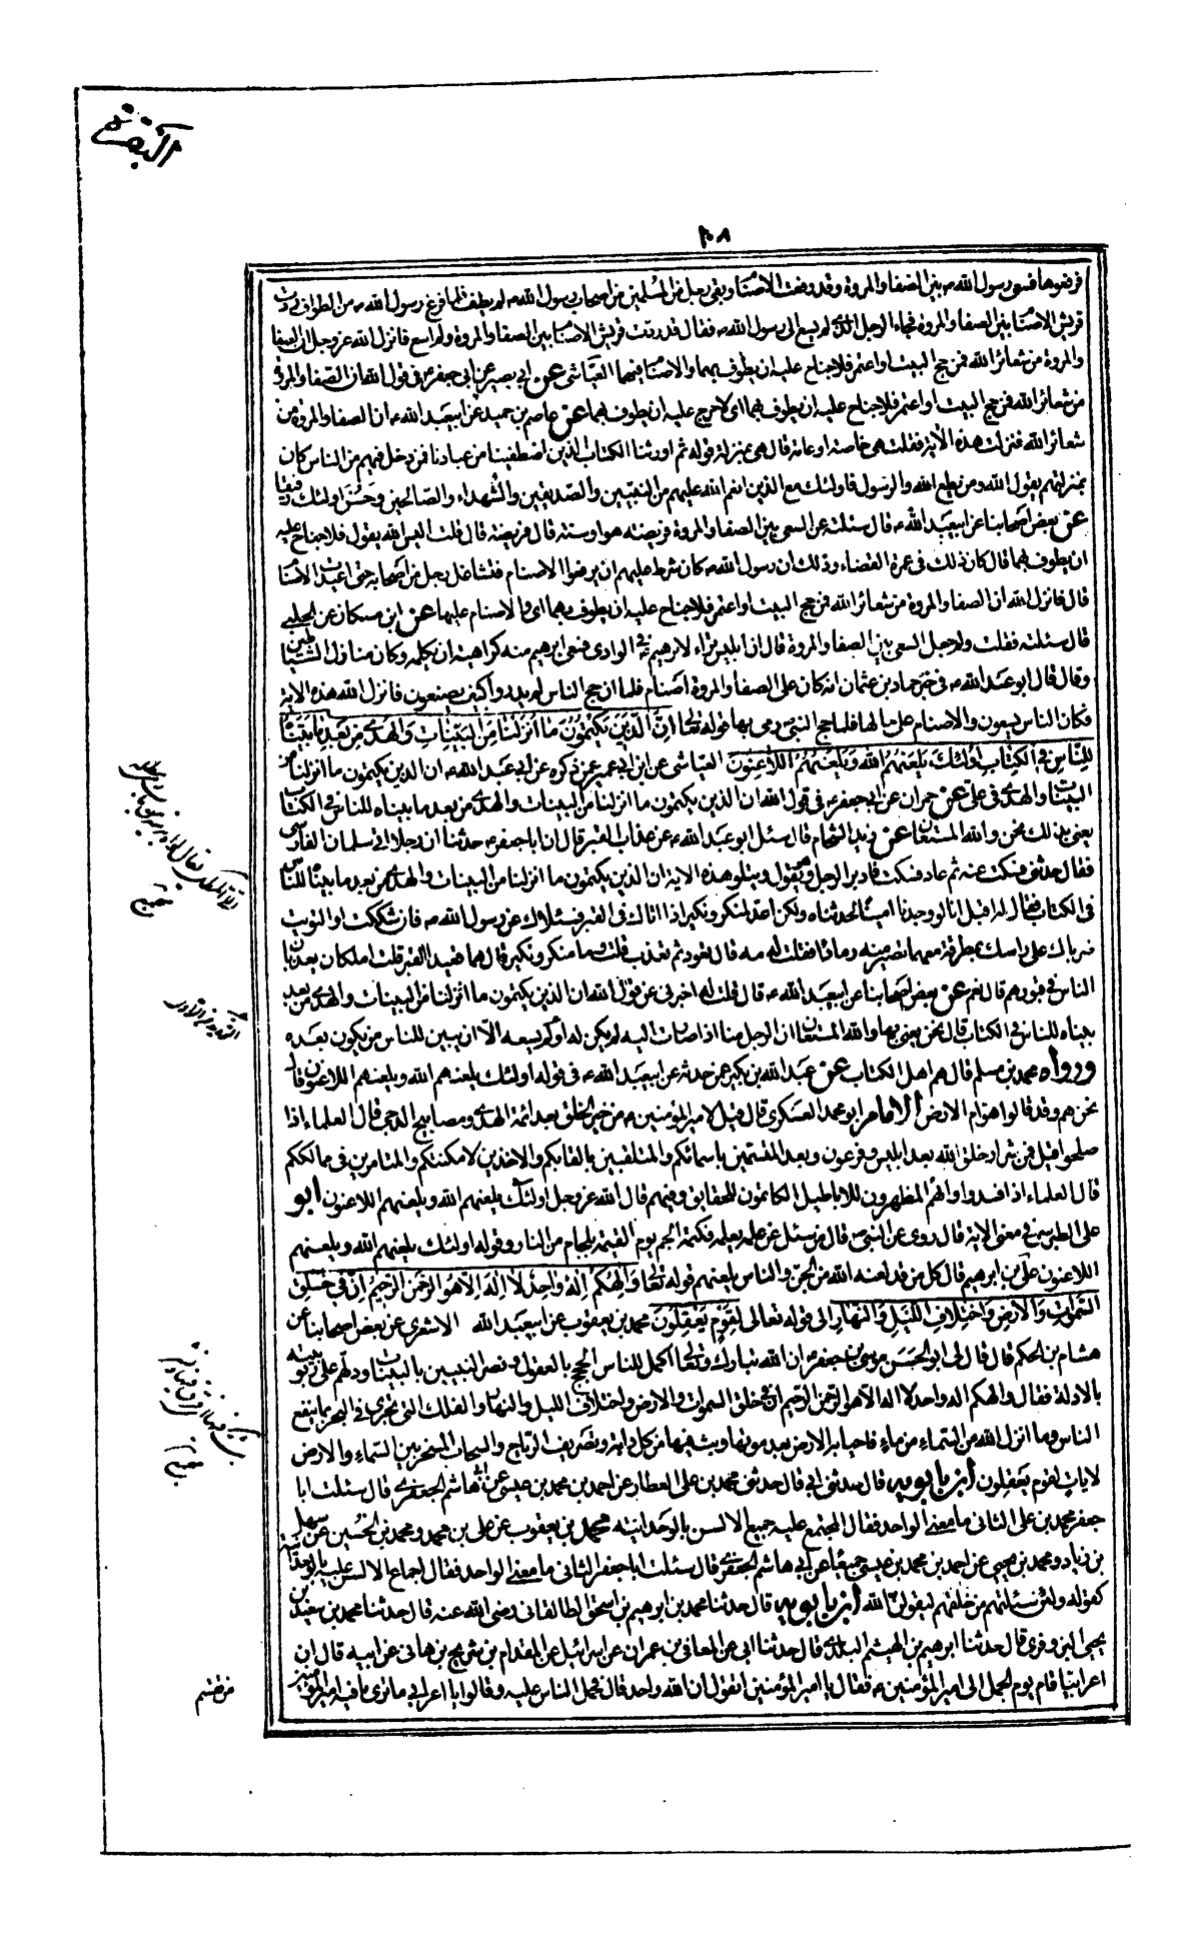 البقرة
١٠٨
فرضوها فسعى رسول الله ص بين الصفا والمروة وقد رفعت الاصنام وبقى رجل من المسلمين من اصحاب رسول الله ص لم يطف فلما فرغ رسول الله ص من الطواف ردت
قريش الاصنام بين الصفا والمروة فجاء الرجل الذى لم يسع الى رسول الله ص فقال قد ردت قريش الاصنام بين الصفا والمروة ولم اسع فانزل الله عز وجل ان الصفا
والمروة من شعائر الله فمن حج البيت او اعتمر فلا جناح عليه ان يطوف بهما والاصنام فيهما العياشى عن ابى بصير عن ابى جعفر ع فى قول الله ان الصفا والمروة
من شعائر الله فمن حج البيت او اعتمر فلا جناح عليه ان يطوف بهما اى لا حرج عليه ان يطوف بهما عن عاصم بن حميد عن ابيعبد الله ع ان الصفا والمروة من
شعائر الله فنزلت هذه الاية فقلت هى خاصة او عامة قال هى بمنزلة قوله ثم اورثنا الكتاب الذين اصطفينا من عبادنا فمن دخل فيهم من الناس كان
بمنزلتهم يقول الله ومن يطع الله والرسول فاولئك مع الذين انعم الله عليهم من النبيين والصديقين والشهداء والصالحين وحسن اولئك رفيقا
عن بعض اصحابنا عن ابيعبد الله ع قال سئلته عن السعى بين الصفا والمروة فريضة هو او سنة قال فريضة قال قلت اليس الله يقول فلا جناح عليه
ان يطوف بهما قال كان ذلك فى عمرة القضاء وذلك ان رسول الله ص كان شرط عليهم ان يرفعوا الاصنام فتشاغل رجل من اصحابه حتى اعيدت الاصنام
قال فانزل الله ان الصفا والمروة من شعائر الله فمن حج البيت او اعتمر فلا جناح عليه ان يطوف بهما اى والاصنام عليهما عن ابن مسكان عن الحلبى
قال سئلته فقلت ولم جعل السعى بين الصفا والمروة قال ان ابليس تراءى لابرهيم ع فى الوادى فسعى ابرهيم منه كراهية ان يكلمه وكان منازل الشياطين
وقال قال ابو عبد الله ع فى خبر حماد بن عثمان انه كان على الصفا والمروة اصنام فلما ان حج الناس لم يدروا كيف يصنعون فانزل الله هذه الاية
فكان الناس يسعون والاصنام على حالها فلما حج النبى ص رمى بها قوله تعالى ان الذين يكتمون ما انزلنا من البينات والهدى من بعد ما بيناه
للناس فى الكتاب اولئك يلعنهم الله ويلعنهم اللاعنون العياشى عن ابن ابى عمير عمن ذكره عن ابى عبد الله ع ان الذين يكتمون ما انزلنا من
البينات والهدى فى على ع عن حمران عن ابى جعفر ع فى قول الله ان الذين يكتمون ما انزلنا من البينات والهدى من بعد ما بيناه للناس فى الكتاب
يعنى بذلك نحن والله المستعان عن زيد الشحام قال سئل ابو عبد الله ع عن عذاب القبر قال ان ابا جعفر ع حدثنا ان رجلا اتى سلمان الفارسى
فقال حدثنى فسكت عنه ثم عاد فسكت فادبر الرجل وهو يقول ويتلو هذه الاية ان الذين يكتمون ما انزلنا من البينات والهدى من بعد ما بيناه للناس
فى الكتاب فقال له اقبل انا لو وجدنا امينا لحدثناه ولكن اعد لمنكر ونكير اذا اتاك فى القبر فسئلاك عن رسول الله ص فان شككت او التويت
ضرباك على راسك بمطرقة معهما تصير منه رمادا فقلت له مه قال تعود ثم تعذب قلت وما منكر ونكير قال هما قعيدا القبر قلت املكان يعذبان
الناس فى قبورهم قال نعم عن بعض اصحابنا عن ابيعبد الله ع قال قلت له اخبرنى عن قول الله ان الذين يكتمون ما انزلنا من البينات والهدى من بعد
بيناه للناس فى الكتاب قال نحن يعنى بها والله المستعان ان الرجل منا اذا صارت اليه لم يكن له او لم يسعه الا ان يبين للناس من يكون بعده
ورواه محمد بن مسلم قال هم اهل الكتاب عن عبد الله بن بكير عمن حدثه عن ابيعبد الله ع فى قوله اولئك يلعنهم الله ويلعنهم اللاعنون قال
نحن هم وقد قالوا هوام الارض الامام ابو محمد العسكرى قال قيل لامير المؤمنين ع من خير الخلق بعد ائمة الهدى ومصابيح الدجى قال العلماء اذا
صلحوا قيل فمن شرار خلق الله بعد ابليس وفرعون وبعد المتسمين باسمائكم والمتلقبين بالقابكم والاخذين لامكنتكم والمتامرين فى ممالككم
قال العلماء اذا فسدوا وانهم المظهرون للاباطيل الكاتمون للحقايق وفيهم قال الله عز وجل اولئك يلعنهم الله ويلعنهم اللاعنون ابو
على الطبرسى فى معنى الاية قال روى عن النبى ص قال من سئل عن علم يعلمه فكتمه الجم يوم القيمة بلجام من النار وقوله اولئك يلعنهم الله ويلعنهم
اللاعنون على بن ابرهيم قال كل من قد لعنه الله من الجن والناس يلعنهم قوله تعالى والهكم اله واحد لا اله الا هو الرحمن الرحيم ان فى خلق
السموات والارض واختلاف الليل والنهار الى قوله تعالى لقوم يعقلون محمد بن يعقوب عن ابيعبد الله الاشعرى عن بعض اصحابنا عن
هشام بن الحكم قال قال لى ابو الحسن موسى بن جعفر ع ان الله تبارك وتعالى اكمل للناس الحجج بالعقول ونصر النبيين بالبينات ودلهم على ربوبيته
بالادلة فقال والهكم اله واحد لا اله الا هو الرحمن الرحيم ان فى خلق السموات والارض واختلاف الليل والنهار والفلك التى تجرى فى البحر بما ينفع
الناس وما انزل الله من السماء من ماء فاحيا به الارض بعد موتها وبث فيها من كل دابة وتصريف الرياح والسحاب المسخر بين السماء والارض
لايات لقوم يعقلون ابن بابويه قال حدثنى ابى قال حدثنى محمد بن على العطار عن احمد بن محمد بن عيسى عن ابى هاشم الجعفرى قال سئلت ابا
جعفر محمد بن على الثانى ما معنى الواحد فقال المجتمع عليه جميع الالسن بالوحدانية محمد بن يعقوب عن على بن محمد ومحمد بن الحسين عن سهل
بن زياد ومحمد بن يحيى عن احمد بن محمد بن عيسى جميعا عن ابى هاشم الجعفرى قال سئلت ابا جعفر الثانى ما معنى الواحد فقال اجماع الالسن عليه بالوحدانية
كقوله ولئن سئلتهم من خلقهم ليقولن الله ابن بابويه قال حدثنا محمد بن ابرهيم بن اسحق الطالقانى رضى الله عنه قال حدثنا محمد بن سعيد بن
يحيى البزوفرى قال حدثنا ابرهيم بن الهيثم البلدى قال حدثنا ابى عن المعافى بن عمران عن اسرائيل عن المقدام بن شريح بن هانى عن ابيه قال ان
اعرابيا قام يوم الجمل الى امير المؤمنين ع فقال يا امير المؤمنين اتقول ان الله واحد قال فحمل الناس عليه وقالوا يا اعرابى ما ترى ما فيه امير المؤمنين